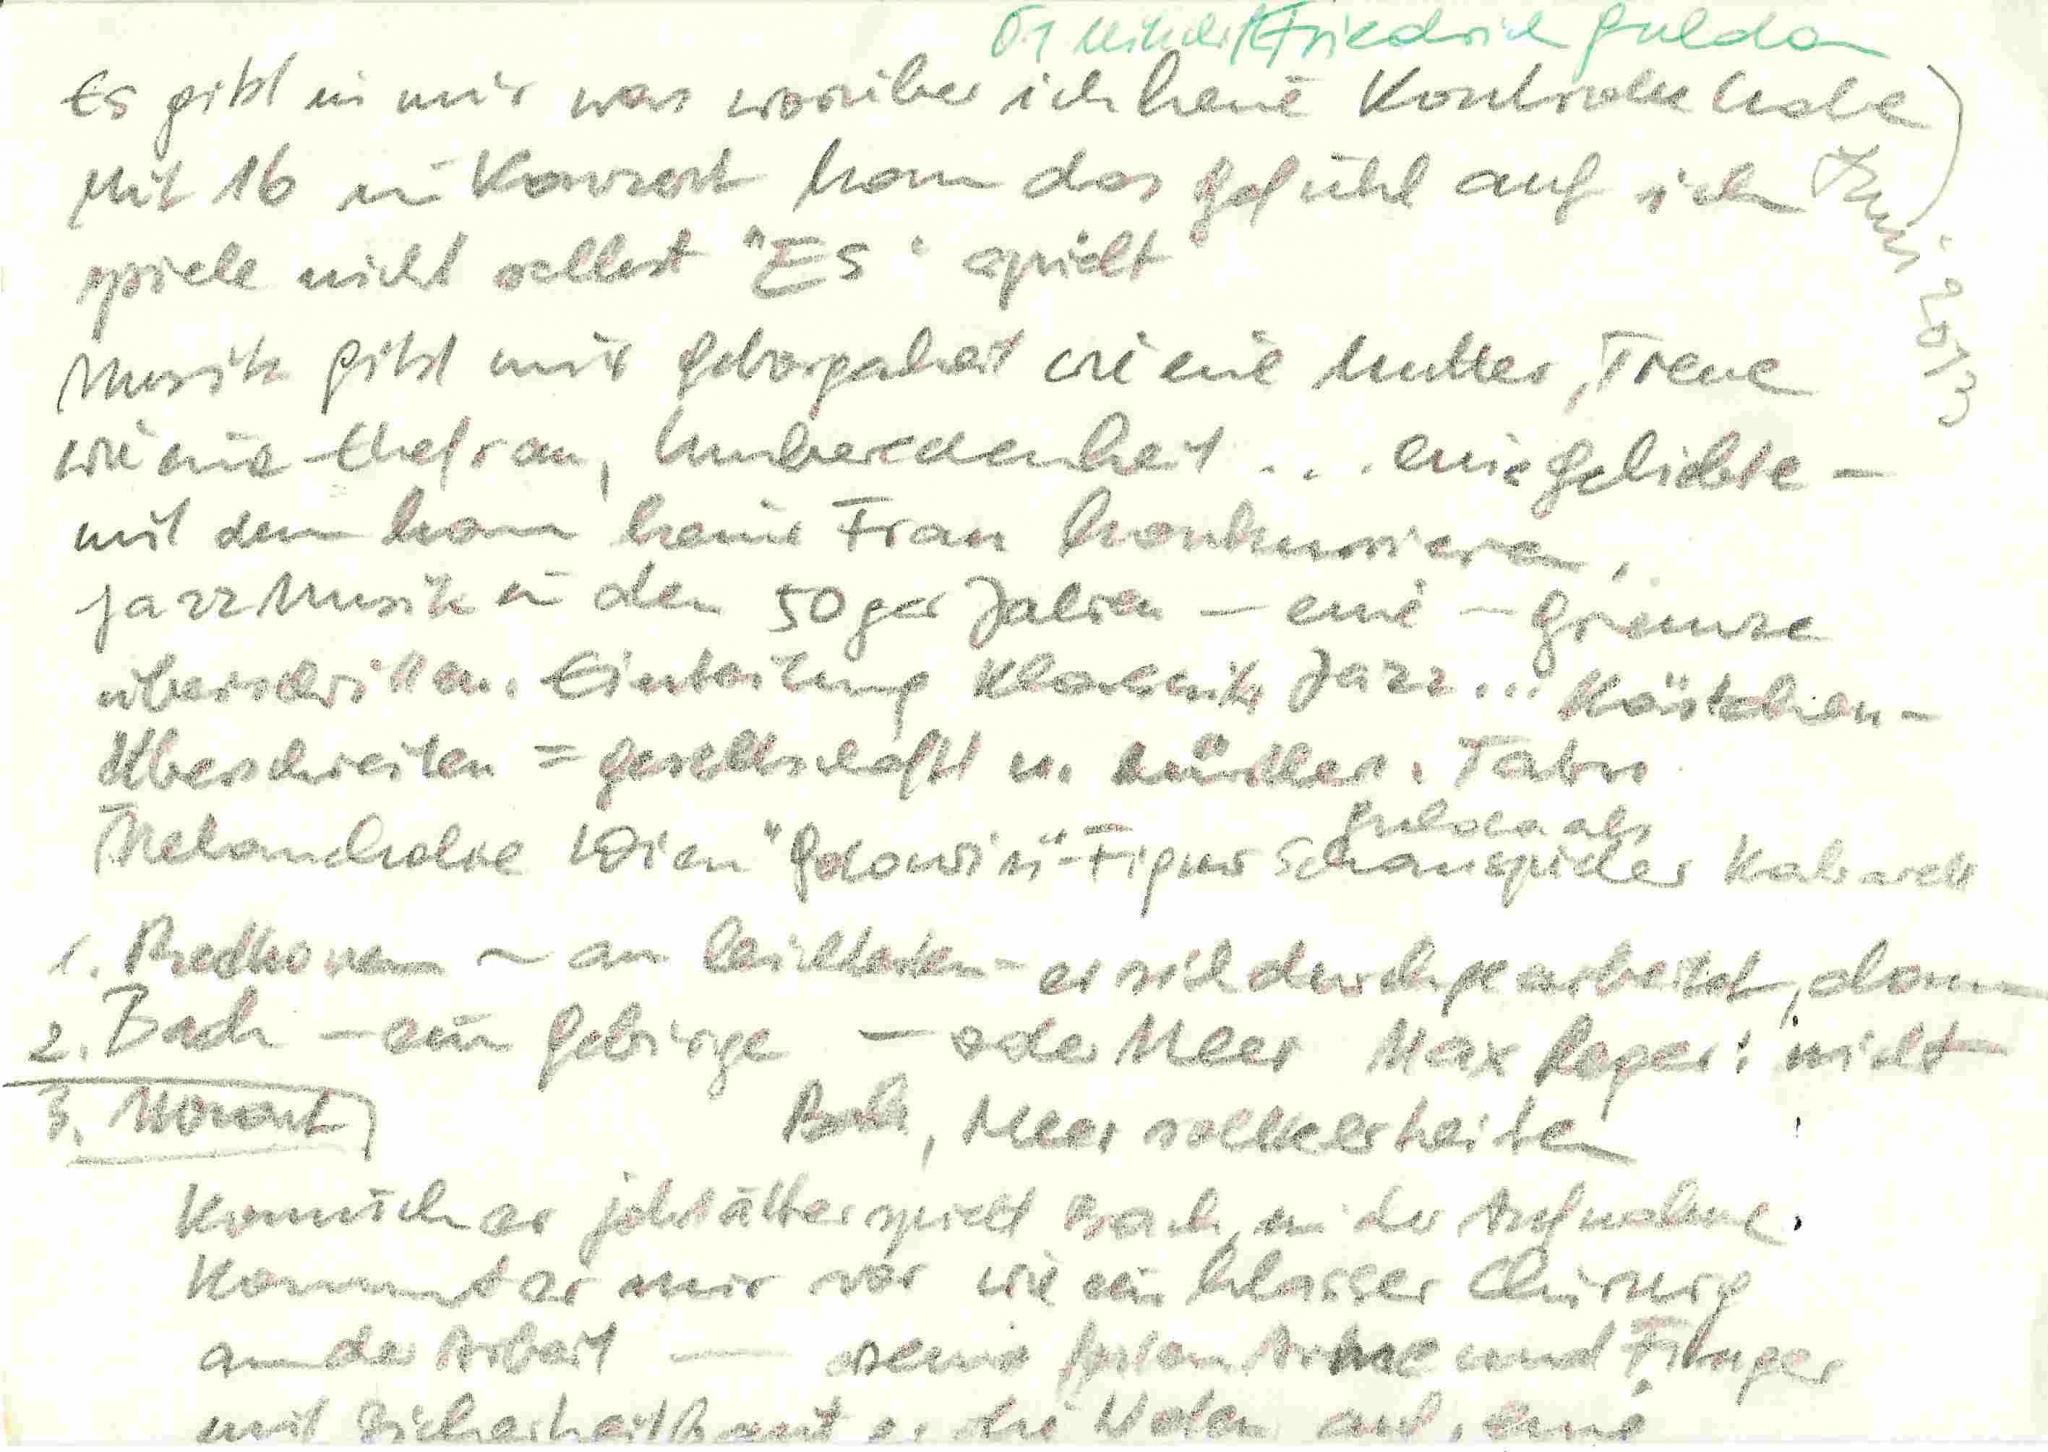 Friedrich Gulda
Es gibt in mir was worüber ich keine Kontrolle habe
Juni 2013
Mit 16 in Konzert kam das Gefühl auf ich
spiele nicht selbst "ES" spielt
Musik gibt mir Geborgenheit wie eine Mutter, Treue
wie eine Ehefrau, ... eine Geliebte –
mit dem kann keine Frau konkurrieren,
Jazz Musik in den 50ger Jahren – eine – Grenze
überschritten. Einteilung Klassik Jazz... Kästchen–
Überschreiten = gesellschaftl u. künstler. Tabu
Gulda als
Melancholie Wien "Golowin"-Figur Schauspieler Kabarett
1. Beethoven ~ am leichtesten – er sich durchgearbeitet, dann
2. Bach – ein Gebirge – oder Meer Max Reger: nicht
3. Mozart
Bach, Meer sollte er heißen
Komisch er jetzt älter spielt Bach, in der Aufnahme.
Kommt er mir vor wie ein blasser Chirurg
an der Arbeit — seine Arme und Finger
mit Sicherheit er die Noten auf, eine